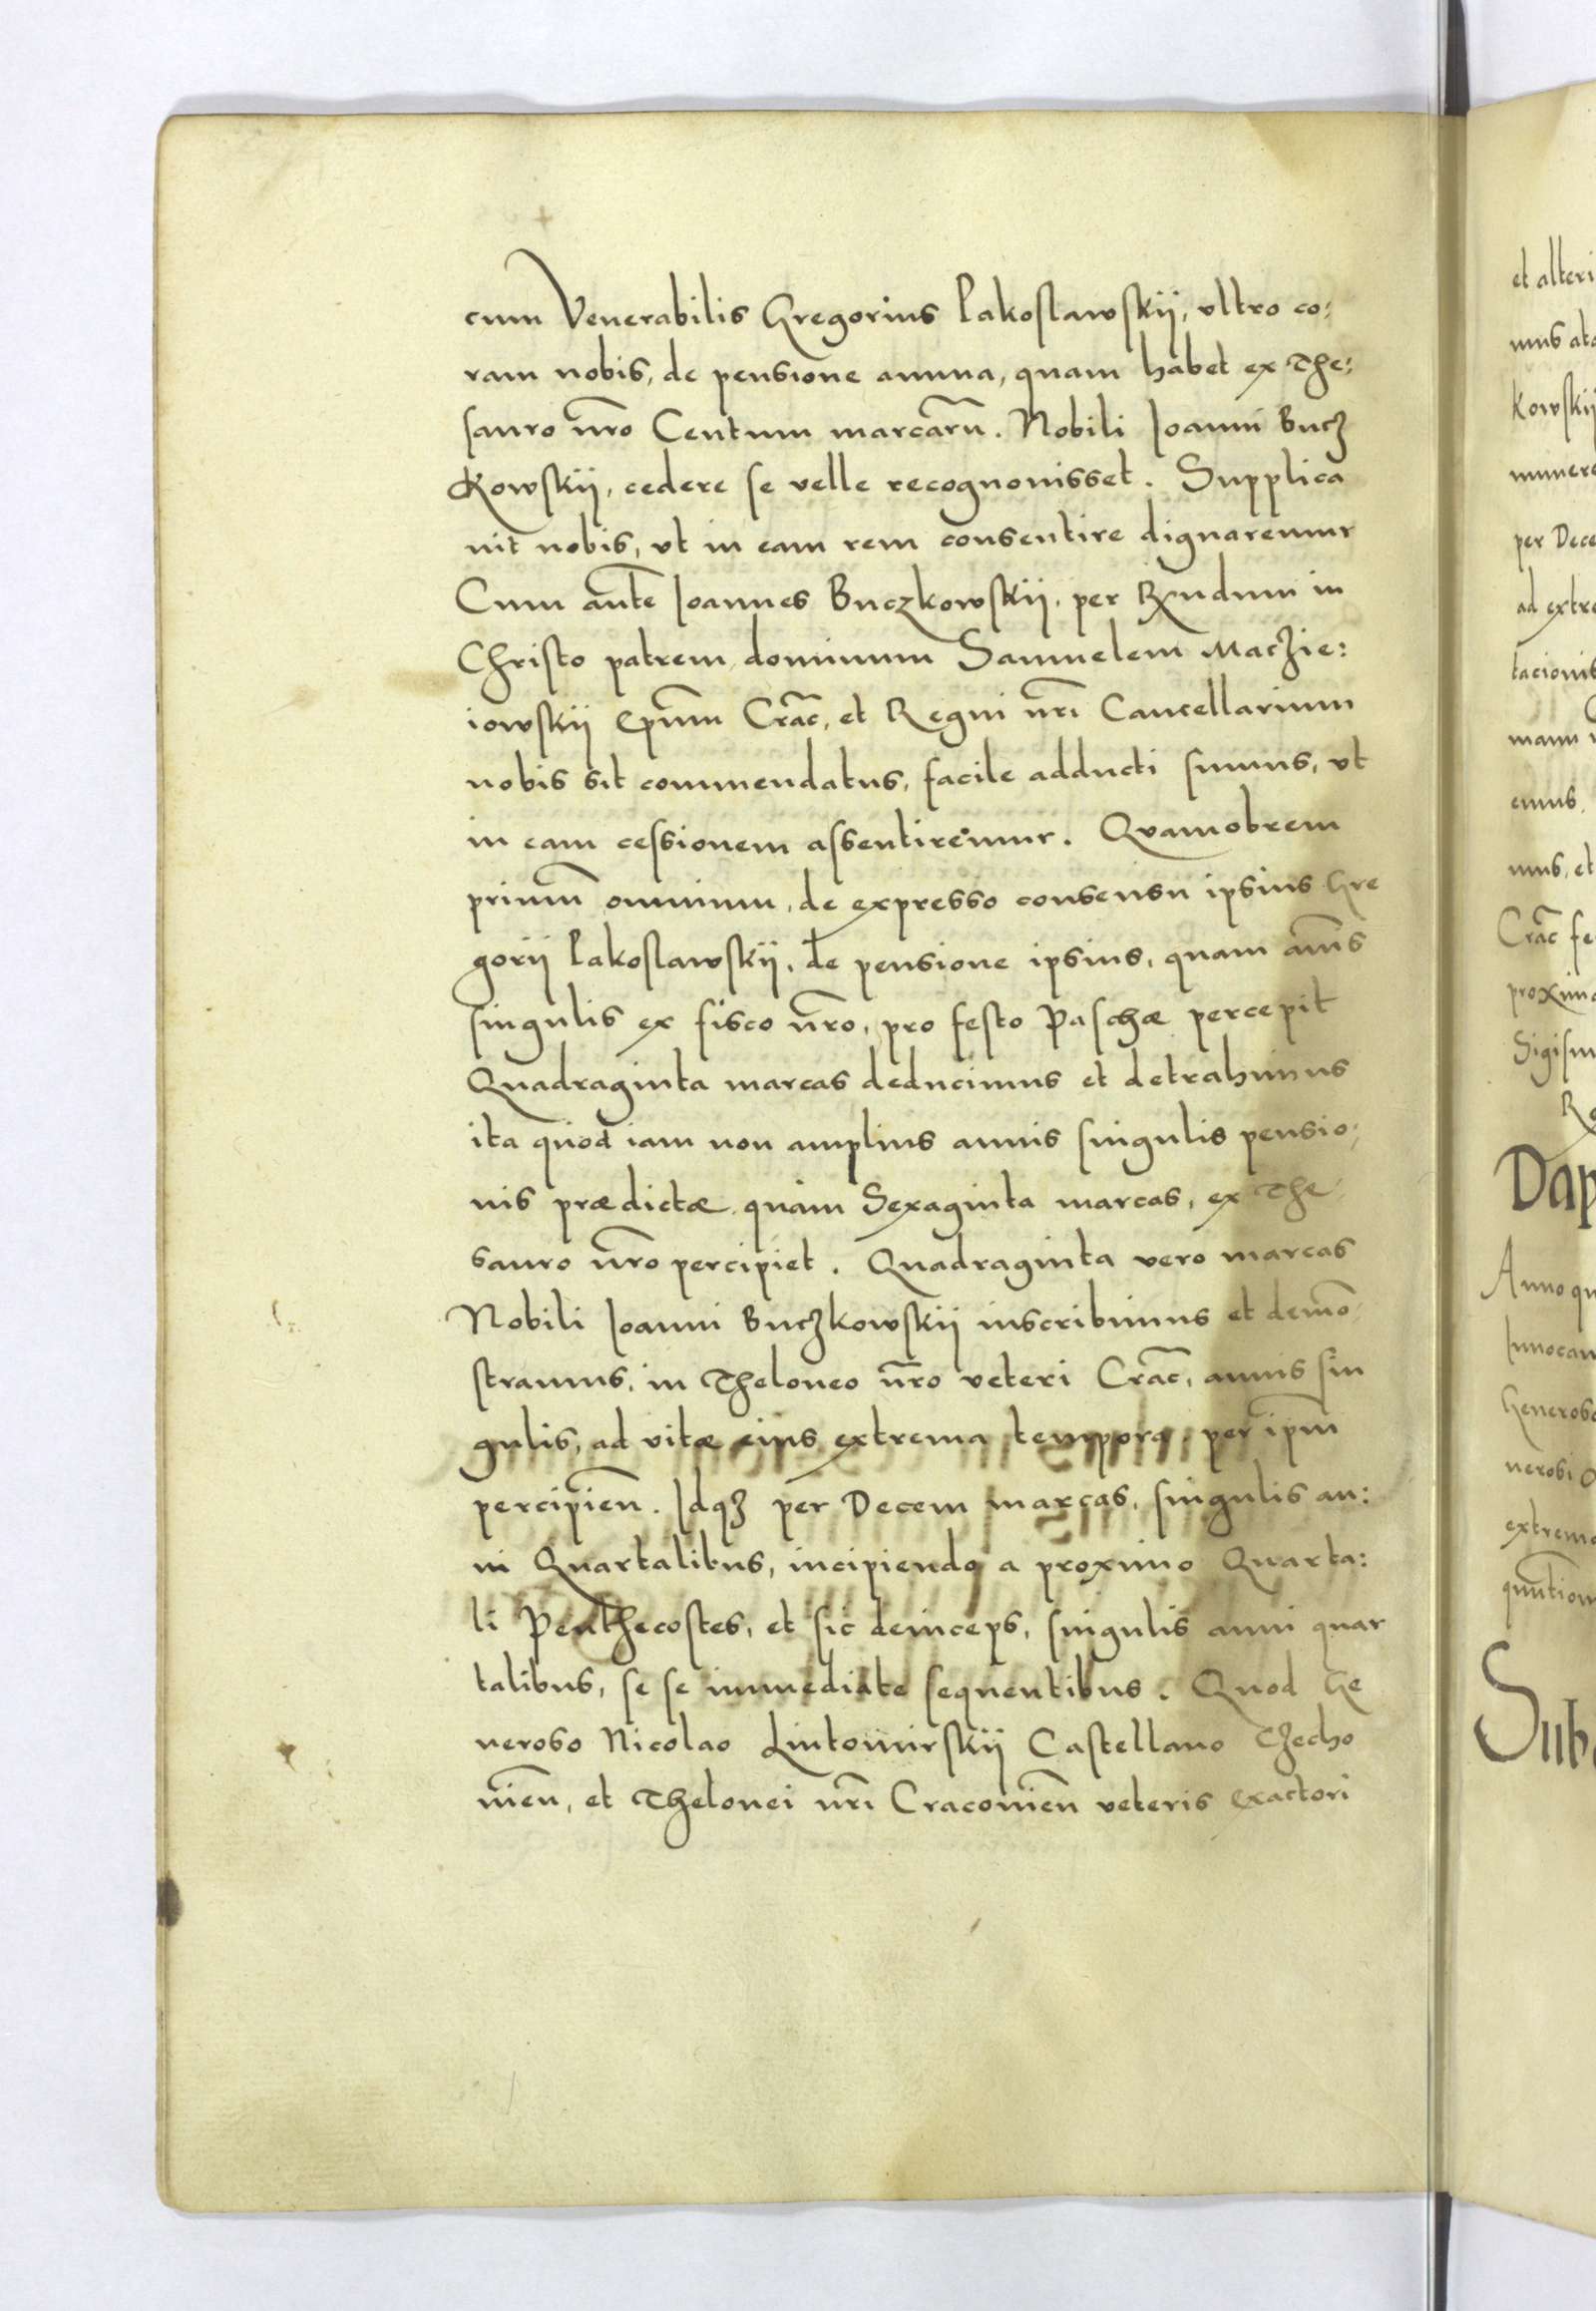 cum Venerabilis Gregorius Lakoslawskij, vltro co:
ram nobis, de pensione annua, quam habet ex The:
sauro nr̃o Centum marcarũ. Nobili Ioanni Bucz
kowskij, cedere se velle recognouisset. Supplica
uit nobis, vt in eam rem consentire dignaremur
Cum aut̃e Ioannes Buczkowskij, per Rx̃ndum in
Christo patrem dominum Samuelem Maczie:
iowskij Ep̃um Crac̃, et Regni nr̃i Cancellarium
nobis sit commendatus, facile adducti sumus, vt
in eam cessionem assentiremur. Quamobrem
primũ omnium, de expresso consensu ipsius Gre
gorij Lakoslawskij, de pensione ipsius, quam añis
singulis ex fisco nr̃o, pro festo Paschæ percepit
Quadraginta marcas deducimus et detrahimus
ita quod iam non amplius annis singulis pensio:
nis prædictæ quam Sexaginta marcas, ex The
sauro nr̃o percipiet. Quadraginta vero marcas
Nobili Ioanni Buczkowskij inscribimus et demõ
stramus, in Theloneo nr̃o veteri Crac̃, annis sin
gulis, ad vitæ eius extrema tempora, per ip̃m
percipieñ. Idqz per Decem marcas, singulis an:
ni Quartalibus, incipiendo a proximo Quarta:
li Penthecostes, et sic deinceps, singulis anni quar
talibus, se se immediate sequentibus. Quod Ge
neroso Nicolao Lintomirskij Castellano Czecho
uieñ, et Thelonei nr̃i Cracouieñ veteris exactori
et alteri
Kowskij
per Dece
ad extre
tacionis
Crac̃ fe
proxima
Sigism
Dap
Anno qu
Generoso
nerosi
extrema
Sub